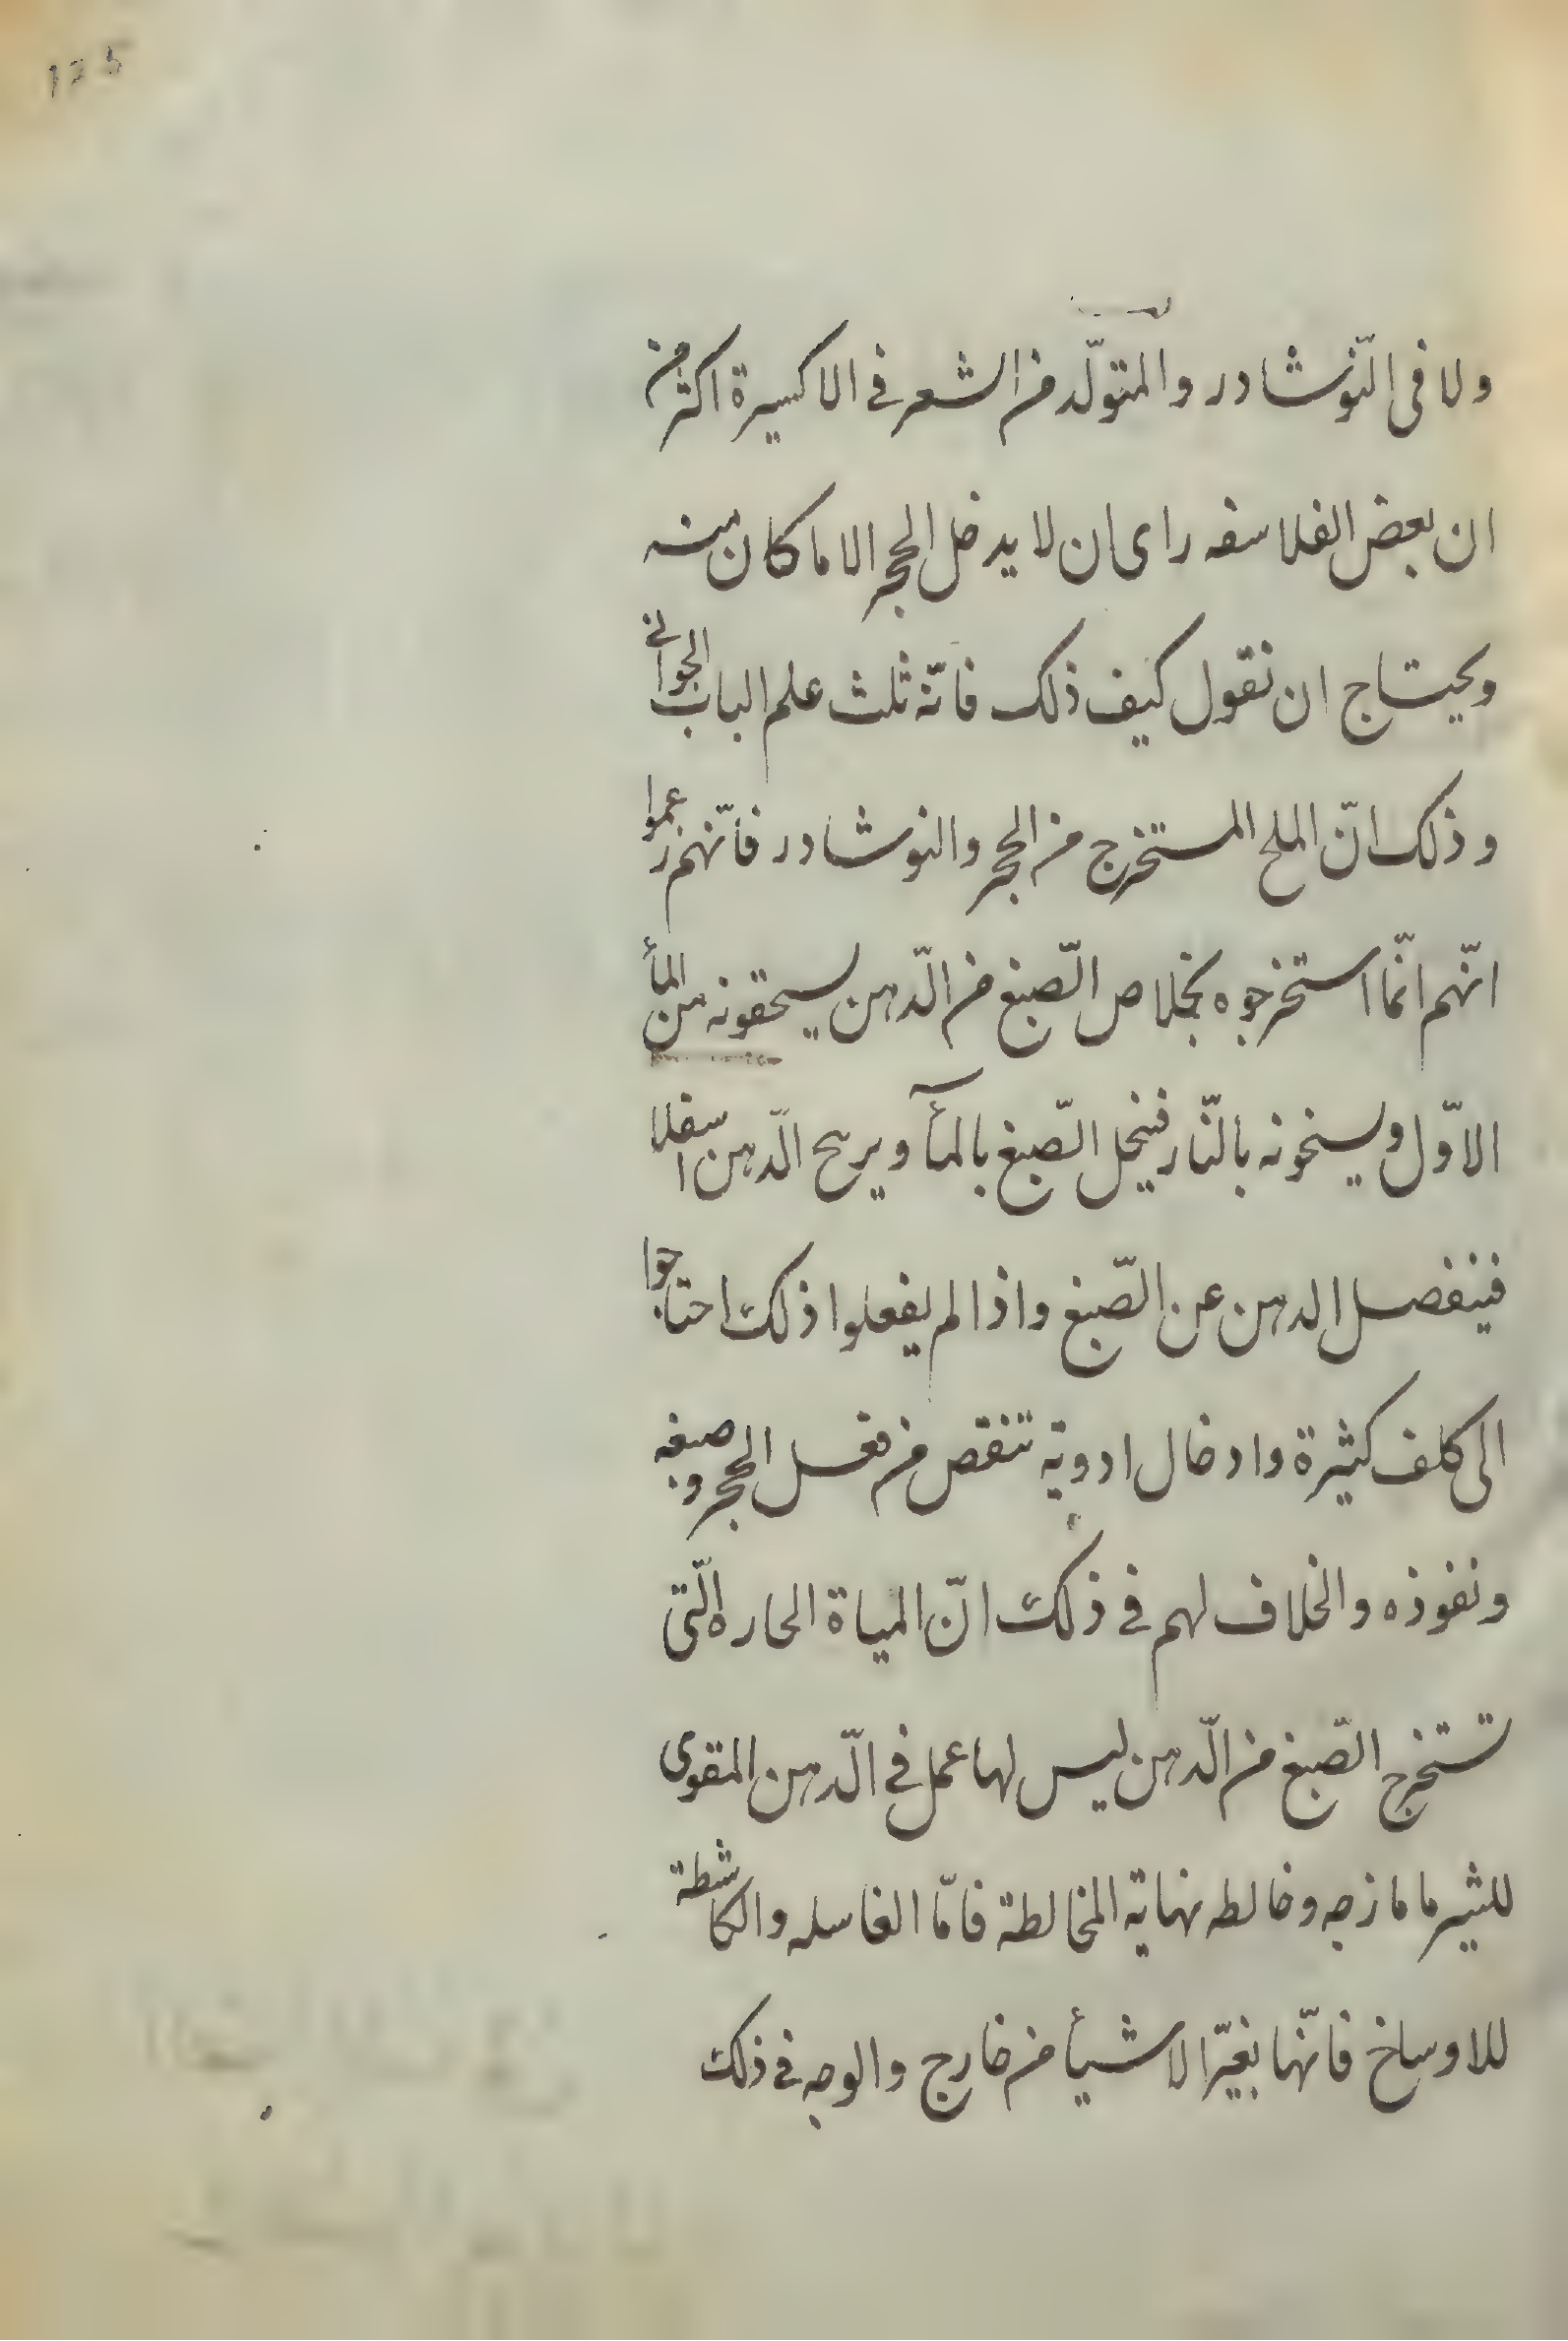 125
ولا فى النّوشادر والمتولّد من الشعر فى الاكسيرة اكثر من
ان بعض الفلاسفه راى ان لا يدخل الحجر الا ما كان منه
ويحتاج ان نقول كيف ذلك فانّه ثلث علم الباب الجوانى
وذلك انّ الملح المستخرج من الحجر والنوشادر فانّهم زعموا
انّهم انّما استخرجوه بخلاص الصّبغ من الدّهن يسحقونه من المأ
الاوّل ويسخنونه بالنّار فينحل الصّبغ بالمآ ويرسح الدّهن اسفلا
فينفصل الدهن عن الصّبغ واذا لم يفعلوا ذلك احتاجوا
الى كلف كثيرة وادخال ادوية تنقص من فعل الحجر وصبغه
ونفوذه والخلاف لهم فى ذلك انّ المياة الحاره الّتى
تستخرج الصّبغ من الدّهن ليس لها عمل فى الدّهن المقوى
للشير ما مازجه وخالطه نهاية المخالطة فامّا الغاسله والكاشطة
للاوساخ فانّها بغيّر الاشيأ من خارج والوجه فى ذلك